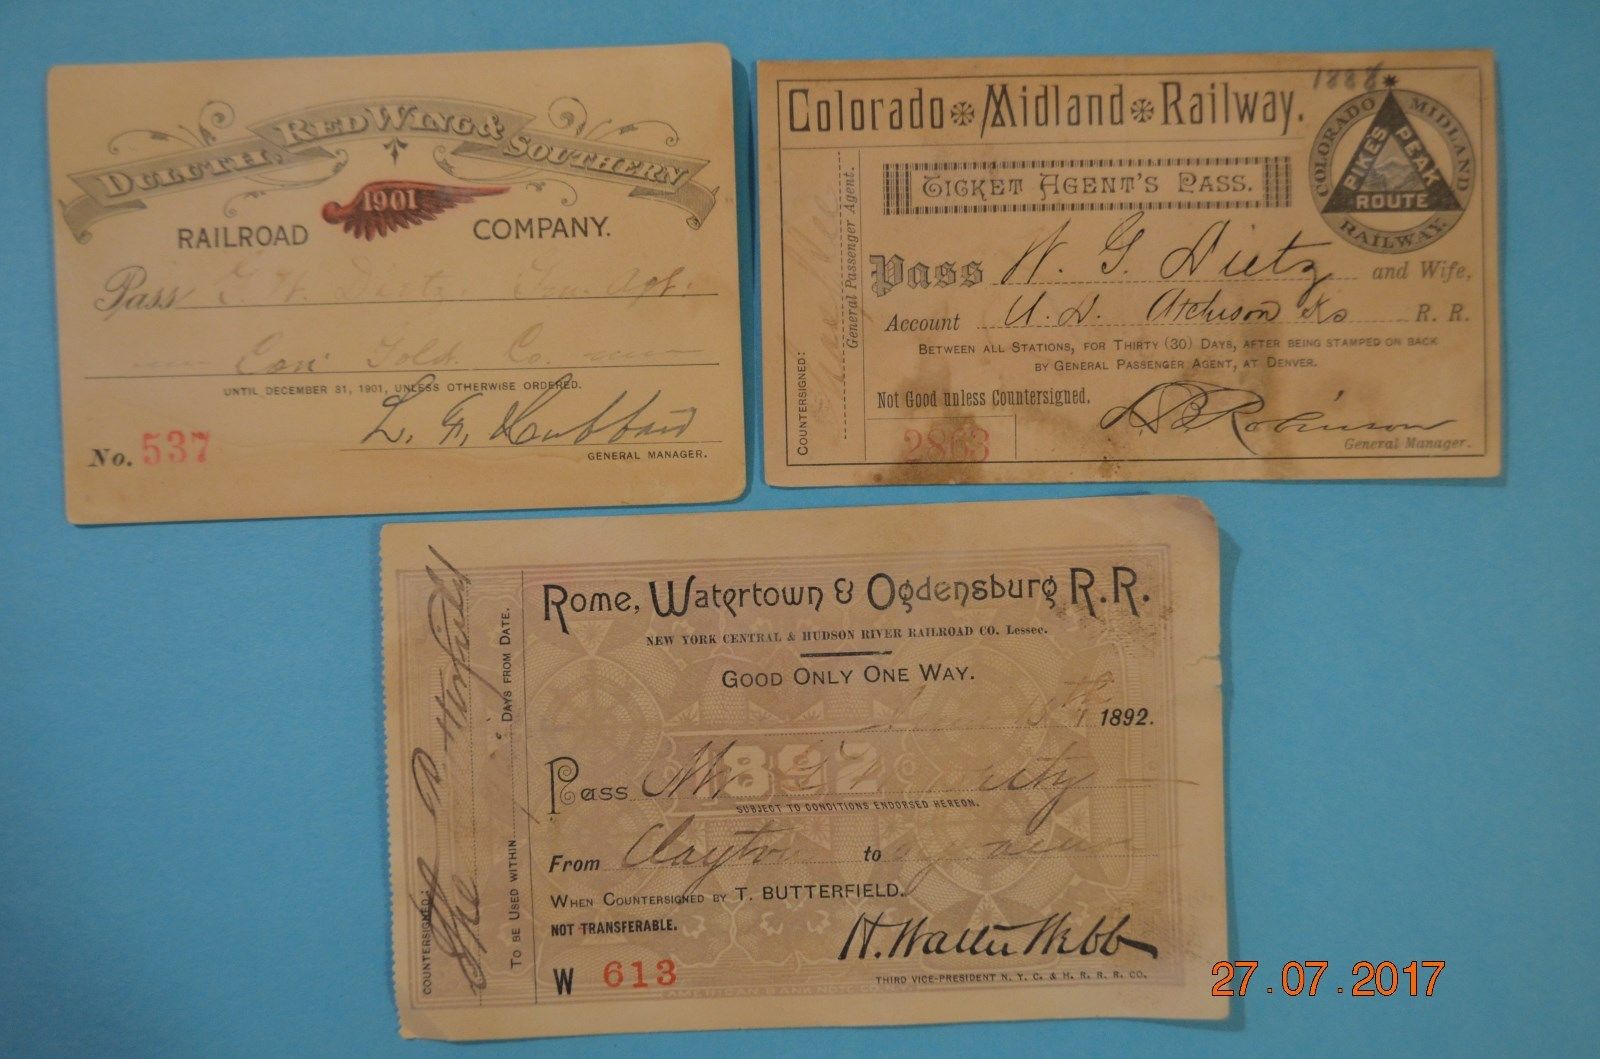 DULUTH, RED WING & SOUTHERN
1901
RAILROAD COMPANY.
Pass G. W. Dietz Gen. Agt.
Con' Told. Co.
UNTIL DECEMBER 31, 1901, UNLESS OTHERWISE ORDERED.
L. F. Hubbard
No. 537
GENERAL MANAGER.
1888
Colorado Midland Railway.
COLORADO MIDLAND RAILWAY.
PIKE'S PEAK ROUTE
TICKET AGENT'S PASS.
Pass W. G. Dietz and Wife,
Account U. D. Atchison Ks R. R.
BETWEEN ALL STATIONS, FOR THIRTY (30) DAYS, AFTER BEING STAMPED ON BACK
BY GENERAL PASSENGER AGENT, AT DENVER.
Not Good unless Countersigned.
2863
Robinson
General Manager.
COUNTERSIGNED:
General Passenger Agent.
Rome, Watertown & Ogdensburg R.R.
NEW YORK CENTRAL & HUDSON RIVER RAILROAD CO. Lessee.
GOOD ONLY ONE WAY.
1892.
1892
Pass Mr
SUBJECT TO CONDITIONS ENDORSED HEREON.
From Clayton to
WHEN COUNTERSIGNED BY T. BUTTERFIELD.
NOT TRANSFERABLE.
H. Walter Webb
W 613
THIRD VICE-PRESIDENT N. Y. C. & H. R. R. R. CO.
AMERICAN BANK NOTE CO. N.Y.
COUNTERSIGNED:
Butterfield
TO BE USED WITHIN DAYS FROM DATE.
27.07.2017